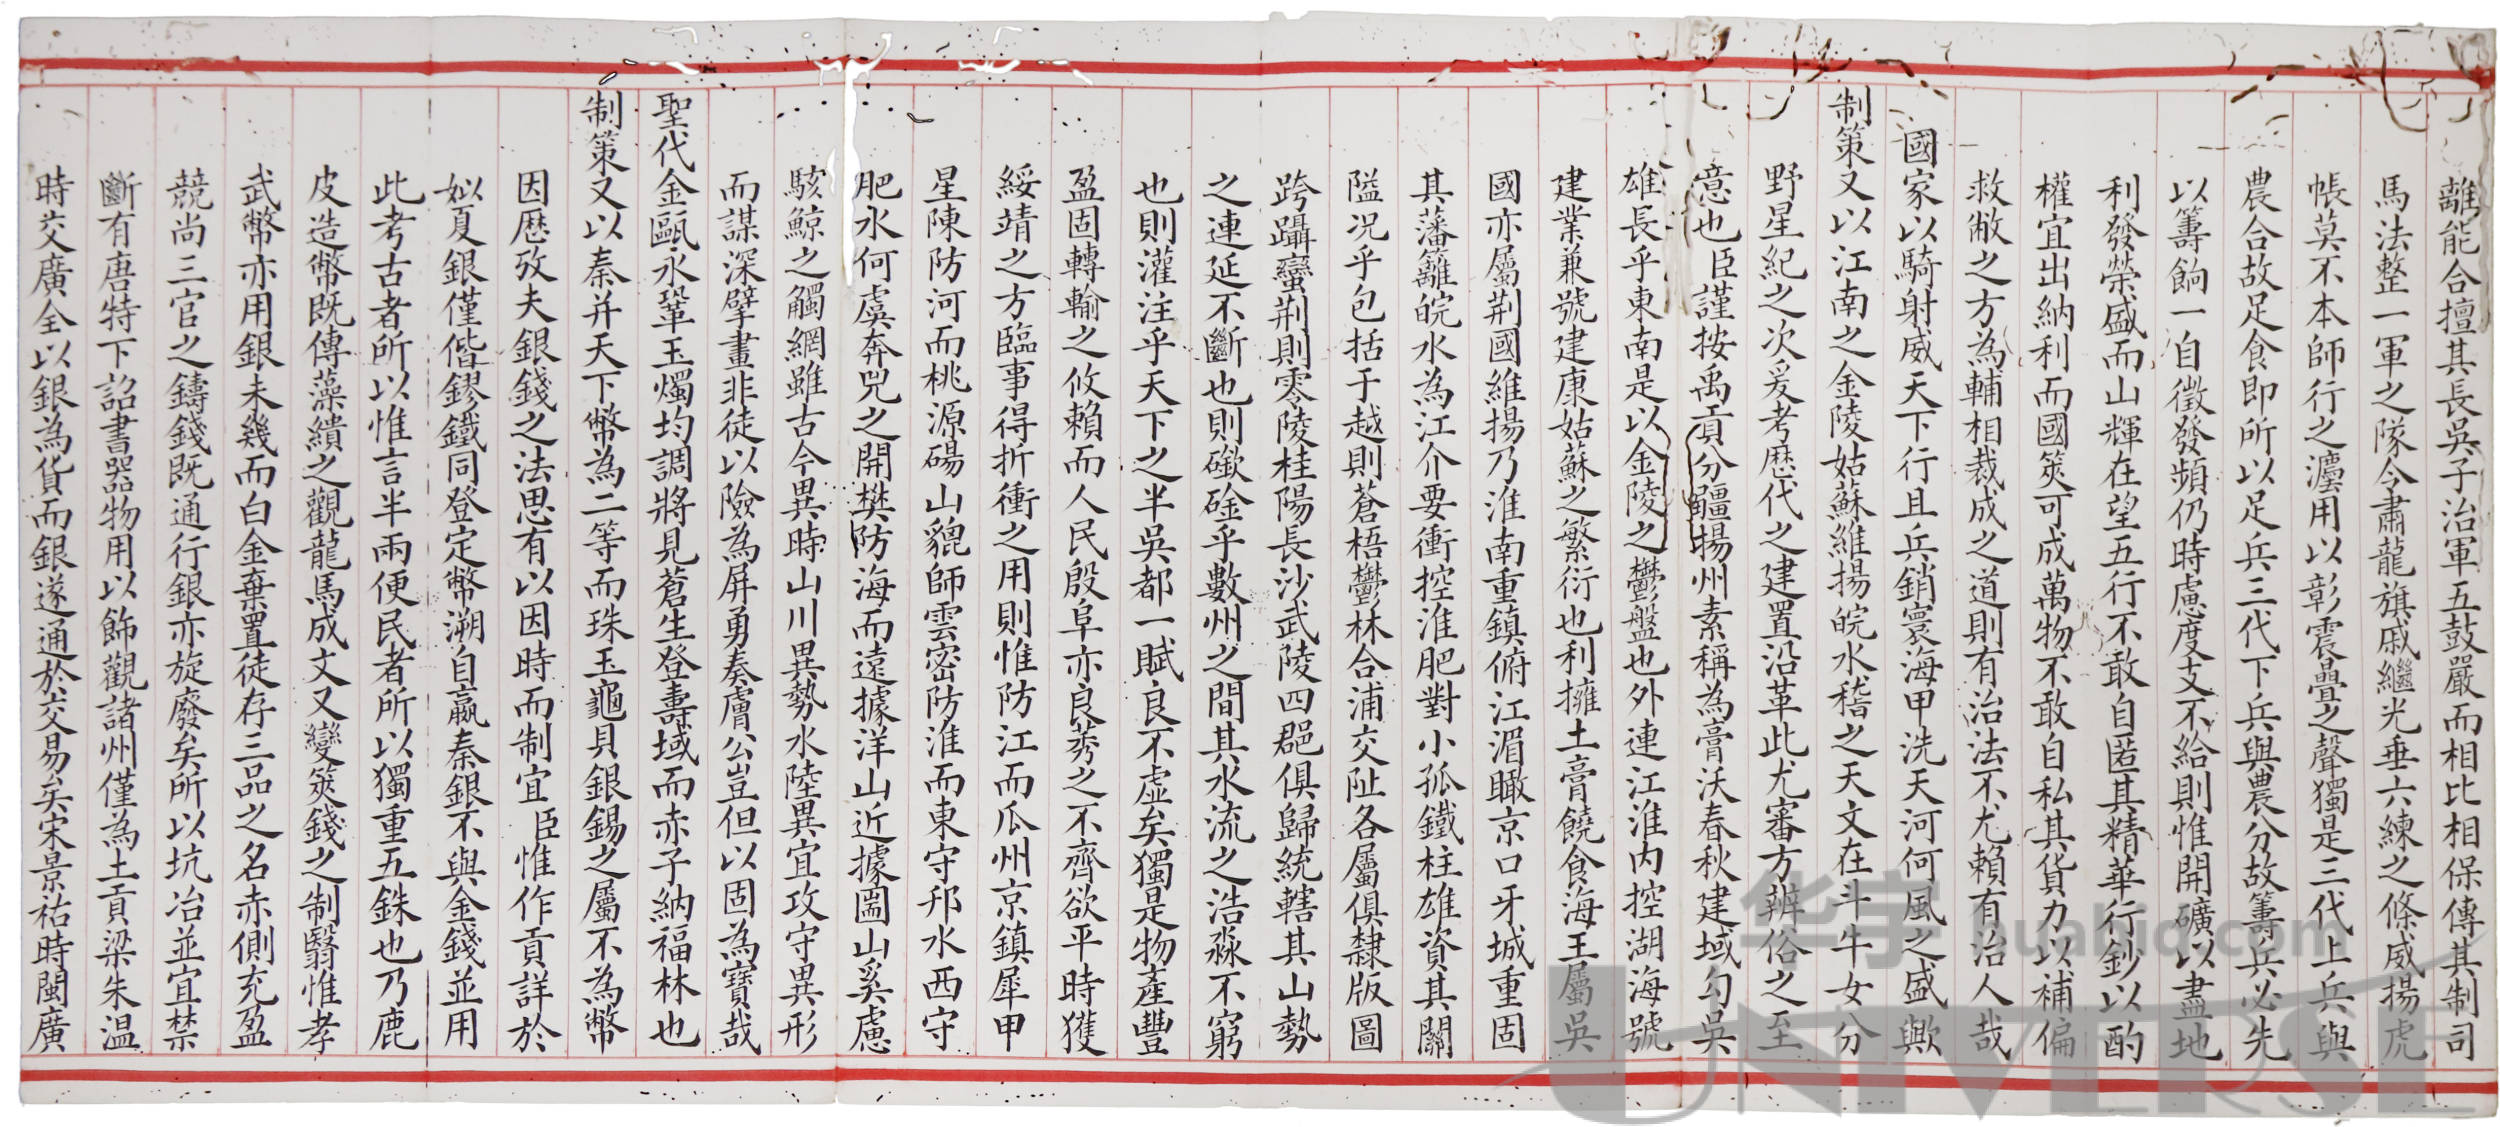 離能合擅其長吳子治軍五鼓嚴而相比相保傳其制司
馬法整一軍之隊今肅龍旗戚繼光垂六練之條威揚虎
帳莫不本師行之灋用以彰震疊之聲獨是三代上兵與
農合故足食即所以足兵三代下兵與農分故籌兵必先
以籌餉一自徵發頻仍時慮度支不給則惟開礦以盡地
利發榮盛而山輝在望五行不敢自匿其精華行鈔以酌
權宜出納利而國筴可成萬物不敢自私其貨力以補偏
救敝之方為輔相裁成之道則有治法不尤賴有治人哉
國家以騎射威天下行且兵銷寰海甲洗天河何風之盛歟
制策又以江南之金陵姑蘇維揚皖水稽之天文在斗牛女分
野星紀之次爰考歷代之建置沿革此尤審方辨俗之至
意也臣謹按禹貢分疆揚州素稱為膏沃春秋建域勾吳
雄長乎東南是以金陵之鬱盤也外連江淮内控湖海號
建業兼號建康姑蘇之繁衍也利擁土膏饒食海王屬吳
國亦屬荆國維揚乃淮南重鎮俯江湄瞰京口牙城重固
其藩籬皖水為江介要衝控淮肥對小孤鐵柱雄資其關
隘況乎包括于越則蒼梧鬱林合浦交阯各屬俱隸版圖
跨躡蠻荆則零陵桂陽長沙武陵四郡俱歸統轄其山勢
之連延不斷也則礉碒乎數州之間其水流之浩淼不窮
也則灌注乎天下之半吳都一賦良不虛矣獨是物產豐
盈固轉輸之攸賴而人民殷阜亦良莠之不齊欲平時獲
綏靖之方臨事得折衝之用則惟防江而瓜州京鎮犀甲
星陳防河而桃源碭山貔師雲密防淮而東守邗水西守
肥水何虞奔兕之開樊防海而遠據洋山近據圌山奚慮
駭鯨之觸網雖古今異時山川異勢水陸異宜攻守異形
而謀深擘畫非徒以險為屏勇奏膚公豈但以固為寶哉
聖代金甌永鞏玉燭均調將見蒼生登壽域而赤子納福林也
制策又以秦并天下幣為二等而珠玉龜貝銀錫之屬不為幣
因歷攷夫銀錢之法思有以因時而制宜臣惟作貢詳於
姒夏銀僅偕鏐鐵同登定幣溯自嬴秦銀不與金錢並用
此考古者所以惟言半兩便民者所以獨重五銖也乃鹿
皮造幣既傳藻繢之觀龍馬成文又變筴錢之制翳惟孝
武幣亦用銀未幾而白金棄置徒存三品之名赤側充盈
競尚三官之鑄錢既通行銀亦旋廢矣所以坑冶並宜禁
斷有唐特下詔書器物用以飾觀諸州僅為土貢梁朱温
時交廣全以銀為貨而銀遂通於交易矣宋景祐時閩廣
华宇 huabid.com
UNIVERSE